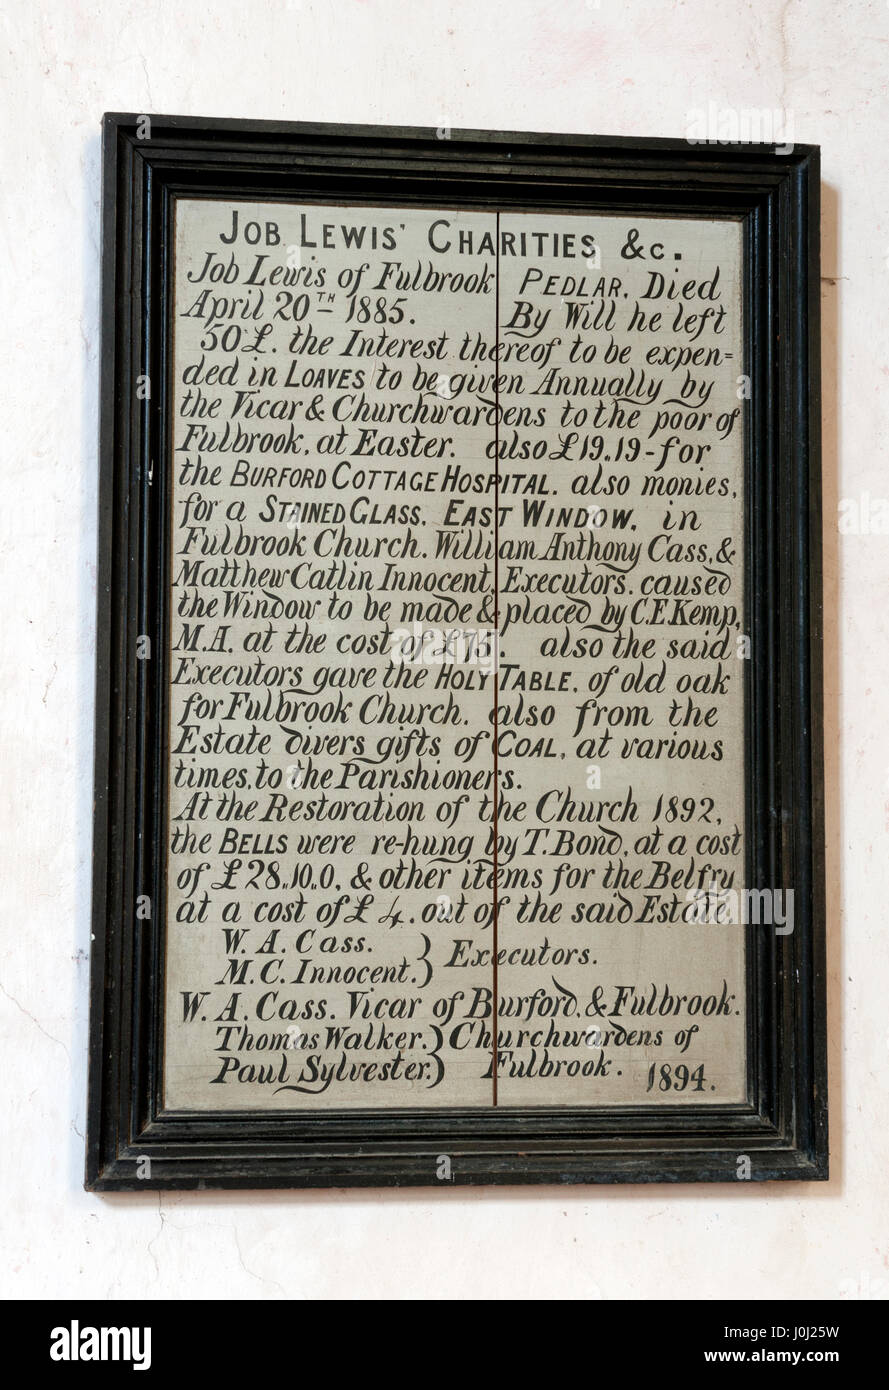 JOB LEWIS' CHARITIES &c.
Job Lewis of Fulbrook PEDLAR. Died
April 20TH 1885. By Will he left
50£. the Interest thereof to be expen=
ded in LOAVES to be given Annually by
the Vicar & Churchwardens to the poor of
Fulbrook, at Easter. also £19,,19 - for
the BURFORD COTTAGE HOSPITAL. also monies,
for a STAINED GLASS. EAST WINDOW. in
Fulbrook Church. William Anthony Cass, &
Matthew Catlin Innocent, Executors. caused
the Window to be made & placed by C.E. Kemp,
M.A. at the cost of £75. also the said
Executors gave the HOLY TABLE. of old oak
for Fulbrook Church. also from the
Estate divers gifts of COAL, at various
times, to the Parishioners.
At the Restoration of the Church 1892,
the BELLS were re-hung by T. Bond, at a cost
of £28,,10,,0, & other items for the Belfry
at a cost of £4. out of the said Estate.
W. A. Cass. } Executors.
M. C. Innocent.
W. A. Cass. Vicar of Burford. & Fulbrook.
Thomas Walker. } Churchwardens of
Paul Sylvester. Fulbrook. 1894.
alamy
Image ID: J0J25W
www.alamy.com